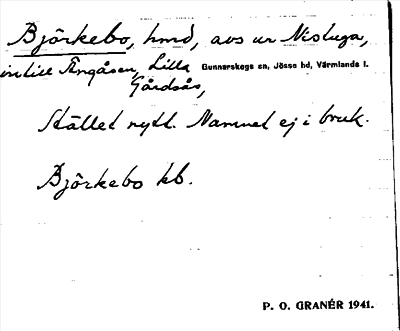 Björkebo, hmd, avs ur Nisluga,
intill Ängåsen, Lilla Gunnarskogs sn, Jösse hd, Värmlands l.
Gårdsås,
Stället nytt. Namnet ej i bruk.
Björkebo kb.
P. O. GRANÉR 1941.